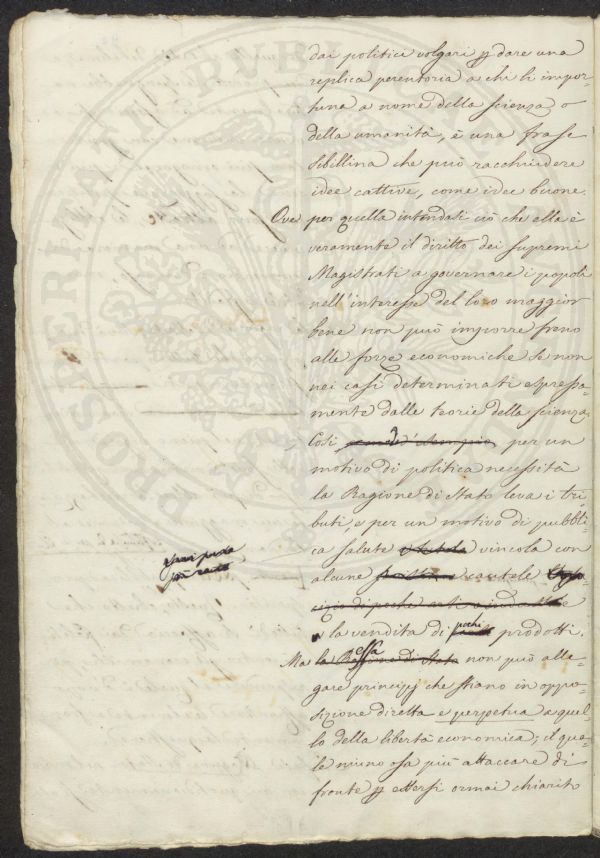 dai politici volgari p dare una
replica perentoria a chi li impor-
tuna a nome della scienza o
della umanità, è una frase
sibillina che può racchiudere
idee cattive, come idee buone.
Ove per quella intendasi ciò che ella è
veramente il diritto dei supremi
Magistrati a governare i popoli
nell'interesse del loro maggior
bene non può imporre freno
alle forze economiche se non
nei casi determinati espressa-
mente dalle teorie della scienza.
Così per un
motivo di politica necessità
la Ragione di Stato leva i tri-
buti, e per un motivo di pubbli-
ca salute vincola con
alcune cautele
la vendita di pochi prodotti.
Ma la Ragione di Stato essa non può alle-
gare principj che stiano in oppo-
sizione diretta e perpetua a quel-
lo della libertà economica; il qua-
le niuno osa più attaccare di
fronte p essersi ormai chiarito